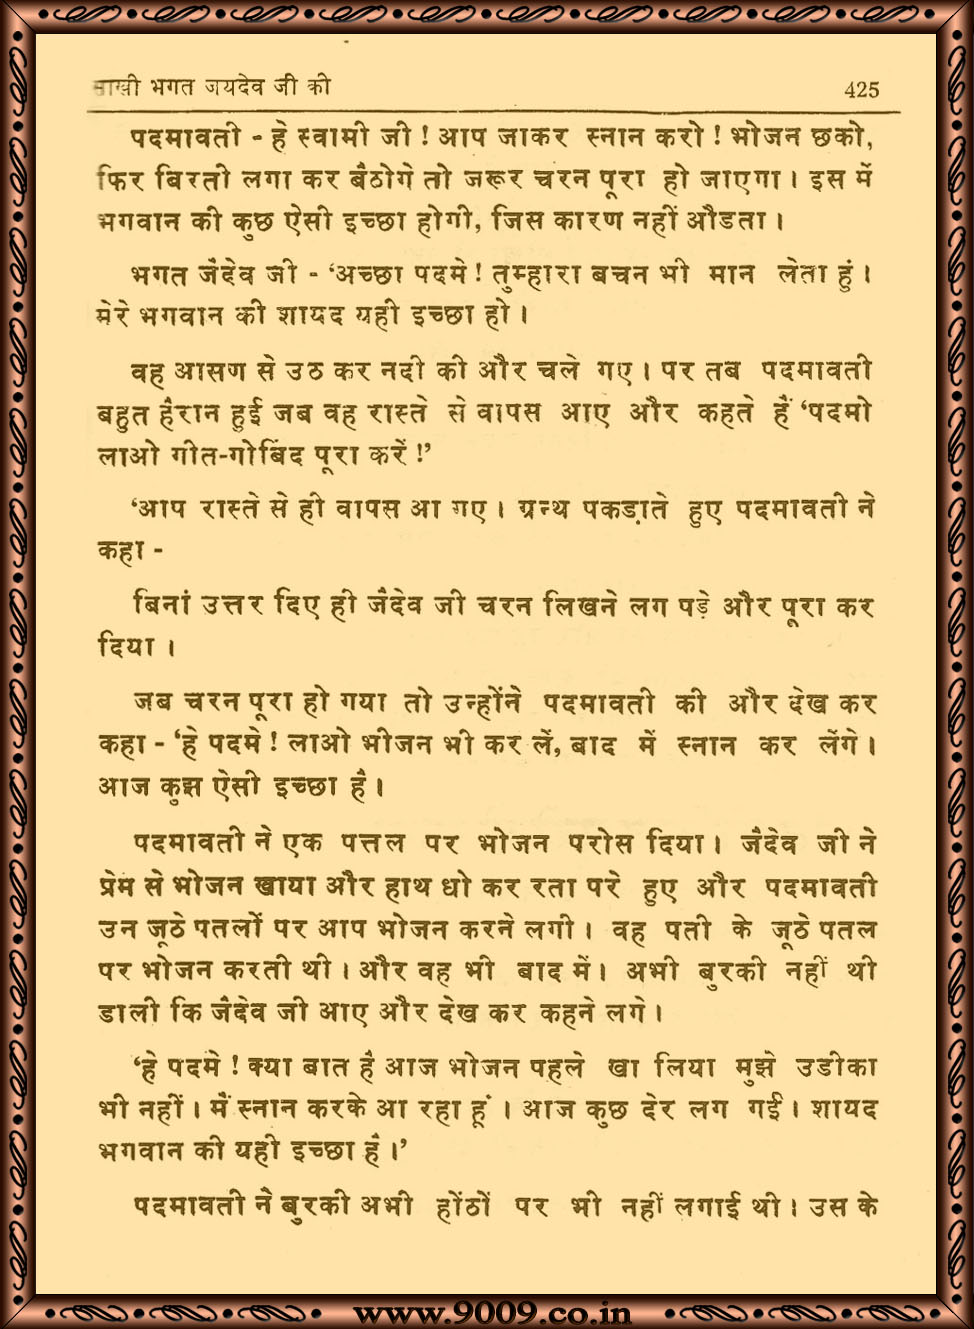 साखी भगत जयदेव जी की 425
पदमावती - हे स्वामी जी ! आप जाकर स्नान करो ! भोजन छको,
फिर बिरती लगा कर बैठोगे तो जरूर चरन पूरा हो जाएगा । इस में
भगवान की कुछ ऐसी इच्छा होगी, जिस कारण नहीं औडता ।
भगत जैदेव जी - ‘अच्छा पदमे ! तुम्हारा बचन भी मान लेता हुं ।
मेरे भगवान की शायद यही इच्छा हो ।
वह आसण से उठ कर नदी की और चले गए । पर तब पदमावती
बहुत हैरान हुई जब वह रास्ते से वापस आए और कहते हैं ‘पदमो
लाओ गीत-गोबिंद पूरा करें !’
‘आप रास्ते से ही वापस आ गए । ग्रन्थ पकडा़ते हुए पदमावती ने
कहा -
बिनां उत्तर दिए ही जैदेव जी चरन लिखने लग पड़े और पूरा कर
दिया ।
जब चरन पूरा हो गया तो उन्होंने पदमावती की और देख कर
कहा - ‘हे पदमे ! लाओ भीजन भी कर लें, बाद में स्नान कर लेंगे ।
आज कुझ ऐसी इच्छा है ।
पदमावती ने एक पत्तल पर भोजन परोस दिया । जैदेव जी ने
प्रेम से भोजन खाया और हाथ धो कर रता परे हुए और पदमावती
उन जूठे पतलों पर आप भोजन करने लगी । वह पती के जूठे पतल
पर भोजन करती थी । और वह भी बाद में । अभी बुरकी नहीं थी
डाली कि जैदेव जी आए और देख कर कहने लगे ।
‘हे पदमे ! क्या बात है आज भोजन पहले खा लिया मुझे उडीका
भी नहीं । मैं स्नान करके आ रहा हूं । आज कुछ देर लग गई । शायद
भगवान की यही इच्छा है ।’
पदमावती ने बुरकी अभी होंठों पर भी नहीं लगाई थी । उस के
www.9009.co.in